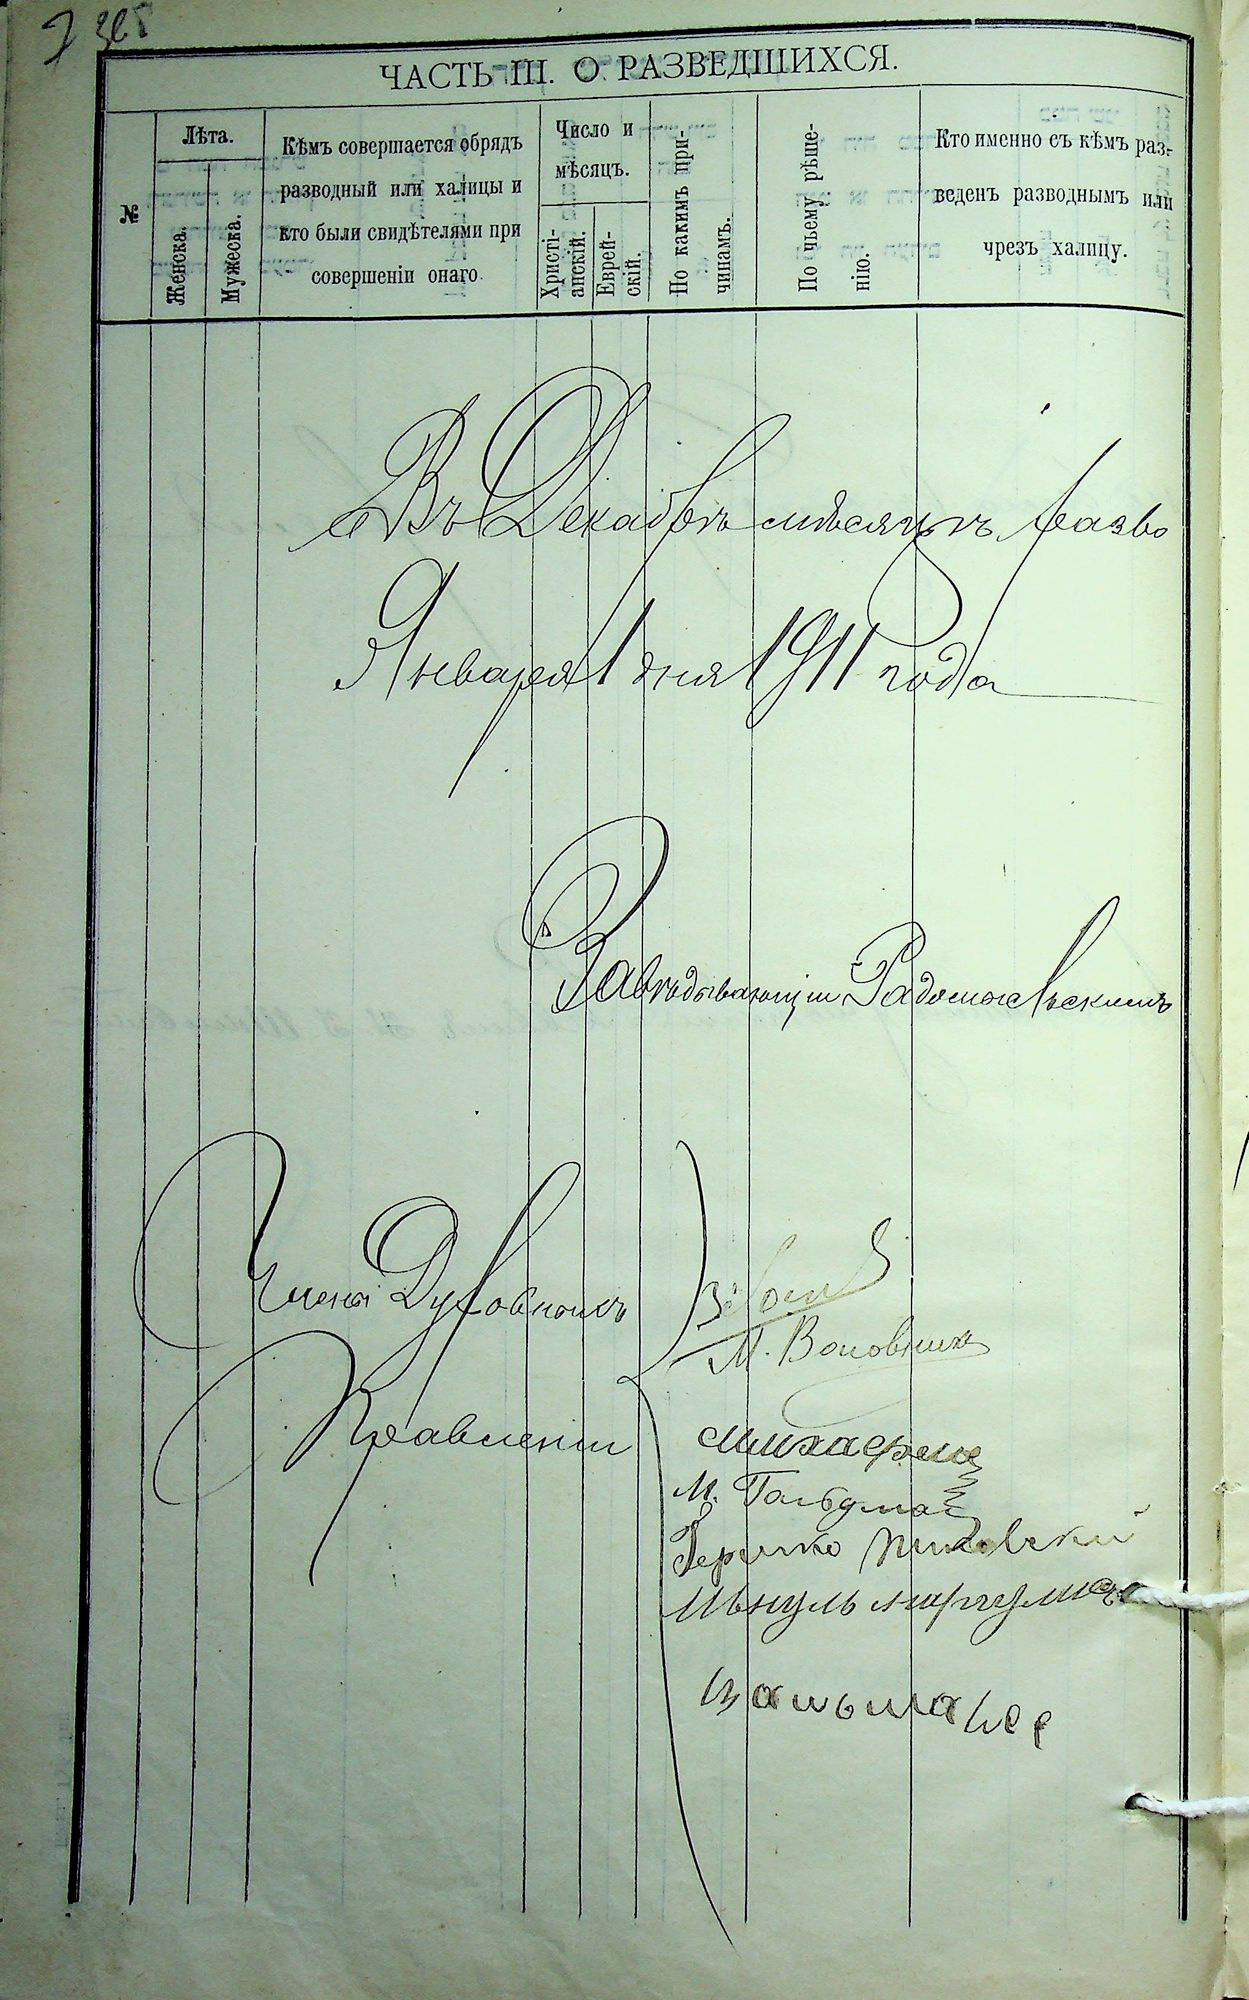 ЧАСТЬ III. О РАЗВЕДШИХСЯ.
№
Лѣта.
Женска.
Мужеска.
Кѣмъ совершается обрядъ
разводный или халицы и
кто были свидѣтелями при
совершеніи онаго.
Число и
мѣсяцъ.
Христі-
анскій.
Еврей-
скій.
По какимъ при-
чинамъ.
По чьему рѣше-
нію.
Кто именно съ кѣмъ раз-
веденъ разводнымъ или
чрезъ халицу.
Въ Декабрѣ мѣсяцѣ разво
Января 1 дня 1911 года
Завѣдывающій Радомысльскимъ
Члены Духовномъ
Правленіи
М. Воловник
М.
Гершко